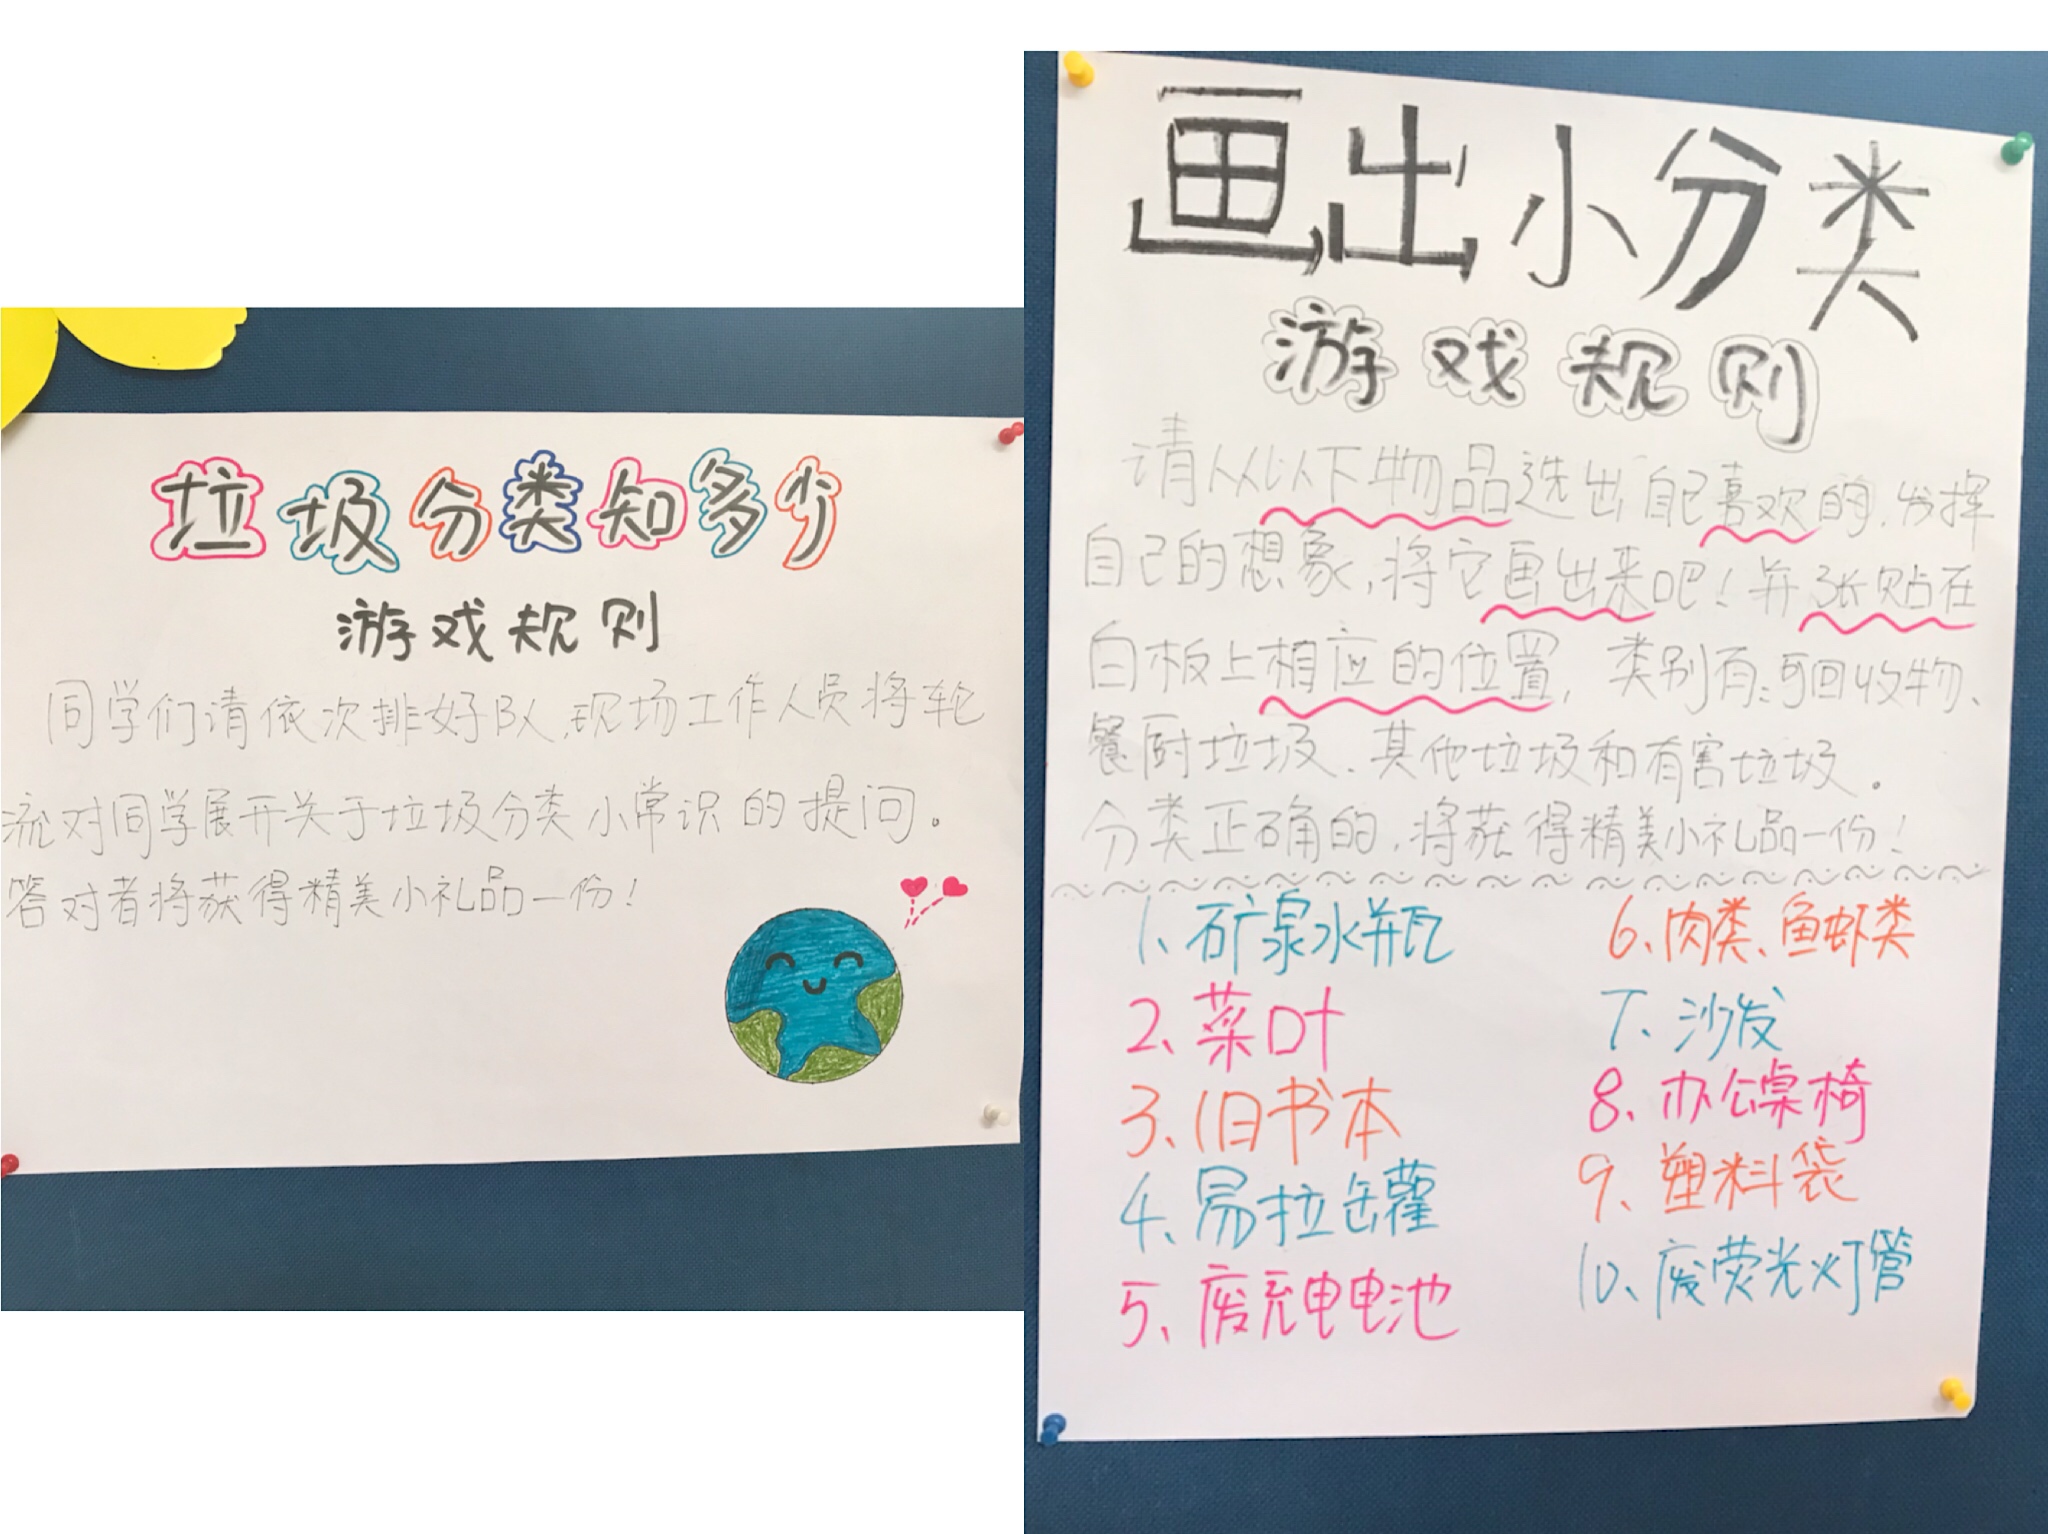 垃圾分类知多少
游戏规则
同学们请依次排好队,现场工作人员将轮
流对同学展开关于垃圾分类小常识的提问。
答对者将获得精美小礼品一份!
画出小分类
游戏规则
请从以下物品选出自己喜欢的,发挥
自己的想象,将它画出来吧!并张贴在
白板上相应的位置,类别有:可回收物、
餐厨垃圾、其他垃圾和有害垃圾。
分类正确的,将获得精美小礼品一份!
1、矿泉水瓶
2、菜叶
3、旧书本
4、易拉罐
5、废充电电池
6、肉类、鱼虾类
7、沙发
8、办公桌椅
9、塑料袋
10、废荧光灯管